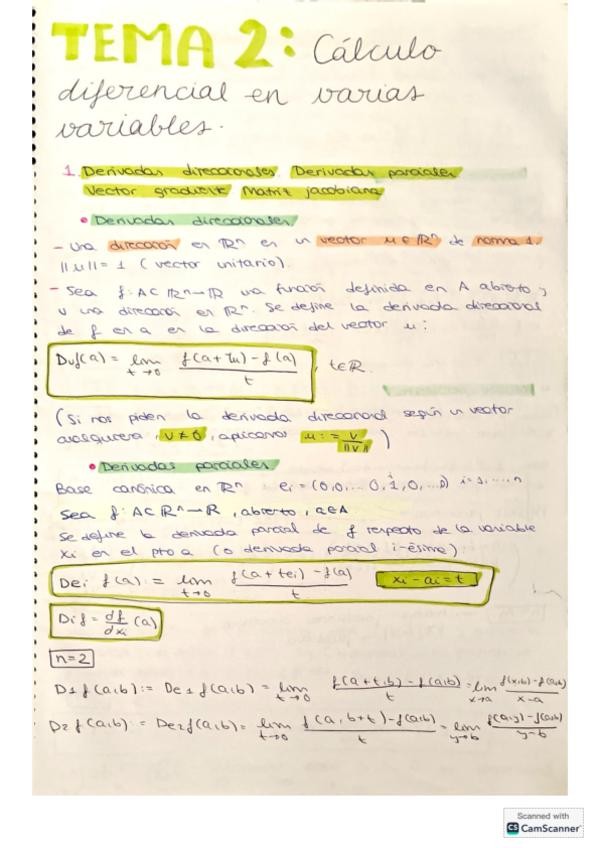 TEMA 2: Cálculo
diferencial en varias
variables.
1. Derivadas direccionales. Derivadas parciales
Vector gradiente. Matriz jacobiana
• Derivadas direccionales
- Una dirección en ℝⁿ es un vector u ∈ ℝⁿ de norma 1.
||u|| = 1 (vector unitario).
- Sea f: A ⊂ ℝⁿ → ℝ una función definida en A abierto y
u una dirección en ℝⁿ. Se define la derivada direccional
de f en a en la dirección del vector u:
Duf(a) = lim t→0 f(a+tu) - f(a) / t , t∈ℝ.
(Si nos piden la derivada direccional según un vector
cualquiera, v ≠ 0, aplicamos u := v / ||v|| )
• Derivadas parciales
Base canónica en ℝⁿ ei = (0,0,... 0, 1, 0, ...0) i = 1, ..., n
Sea f: A ⊂ ℝⁿ → ℝ, abierto, a∈A
Se define la derivada parcial de f respecto de la variable
xi en el pto a (o derivada parcial i-ésima)
Dei f(a) = lim t→0 f(a+tei) - f(a) / t xi - ai = t
Dif = df/dxi (a)
n=2
D1 f(a,b) := De1 f(a,b) = lim t→0 f(a+t,b) - f(a,b) / t = lim x→a f(x,b) - f(a,b) / x-a
D2 f(a,b) := De2 f(a,b) = lim t→0 f(a,b+t) - f(a,b) / t = lim y→b f(a,y) - f(a,b) / y-b
Scanned with
CS CamScanner